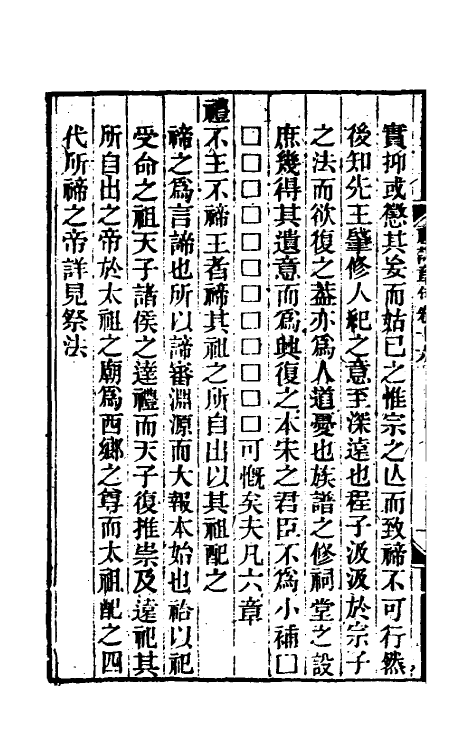 實抑或懲其妄而姑已之惟宗之亾而致禘不可行然
後知先王肇修人紀之意至深遠也程子汲汲於宗子
之法而欲復之葢亦爲人道憂也族譜之修祠堂之設
庶幾得其遺意而爲興復之本宋之君臣不爲小補□
□□□□□□□□□□□□□可慨矣夫凡六章
禮不王不禘王者禘其祖之所自出以其祖配之
禘之爲言諦也所以諦審淵源而大報本始也祫以祀
受命之祖天子諸侯之達禮而天子復推崇及遠祀其
所自出之帝於太祖之廟爲西鄉之尊而太祖配之四
代所禘之帝詳見祭法